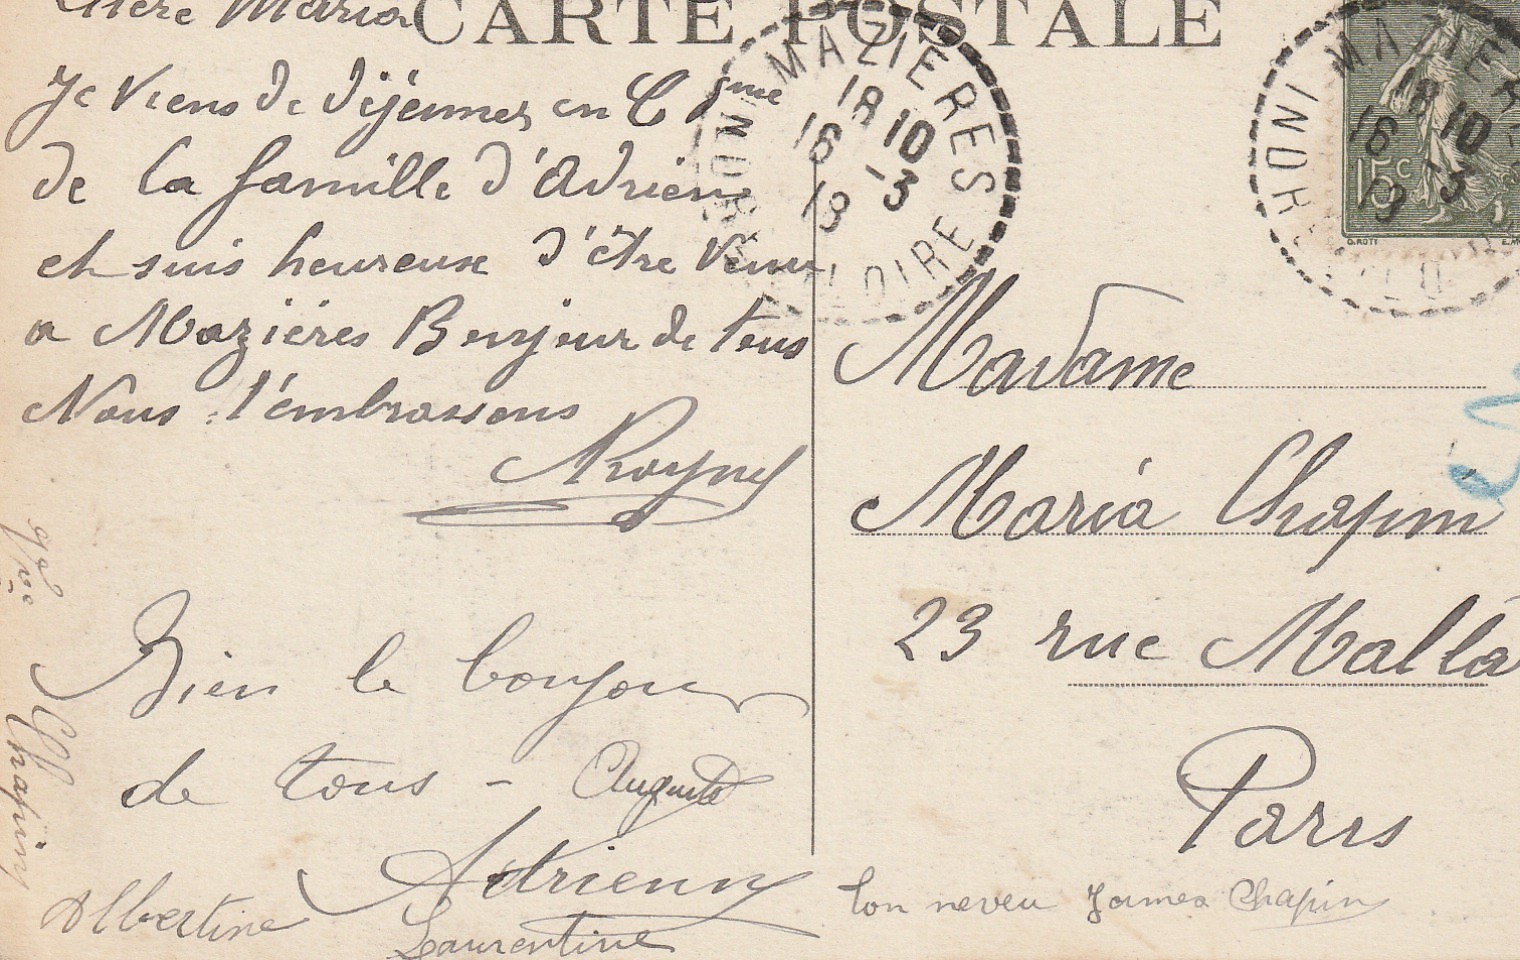 Chère Maria
CARTE POSTALE
Je viens de déjeuner en Cie
de la famille d'Adrien
et suis heureuse d'être venu
a Mazières Bonjour de tous
Nous t'embrassons
Bien le bonjour
de tous - Augusta
Adrienne
Albertine
Laurentine
Chapin
MAZIERES
18 10
16 -3
19
LOIRE
MAZIERES
18 10
16 -3
19
15c
O. ROTY
Madame
Maria Chapin
23 rue Malla
Paris
ton neveu James Chapin